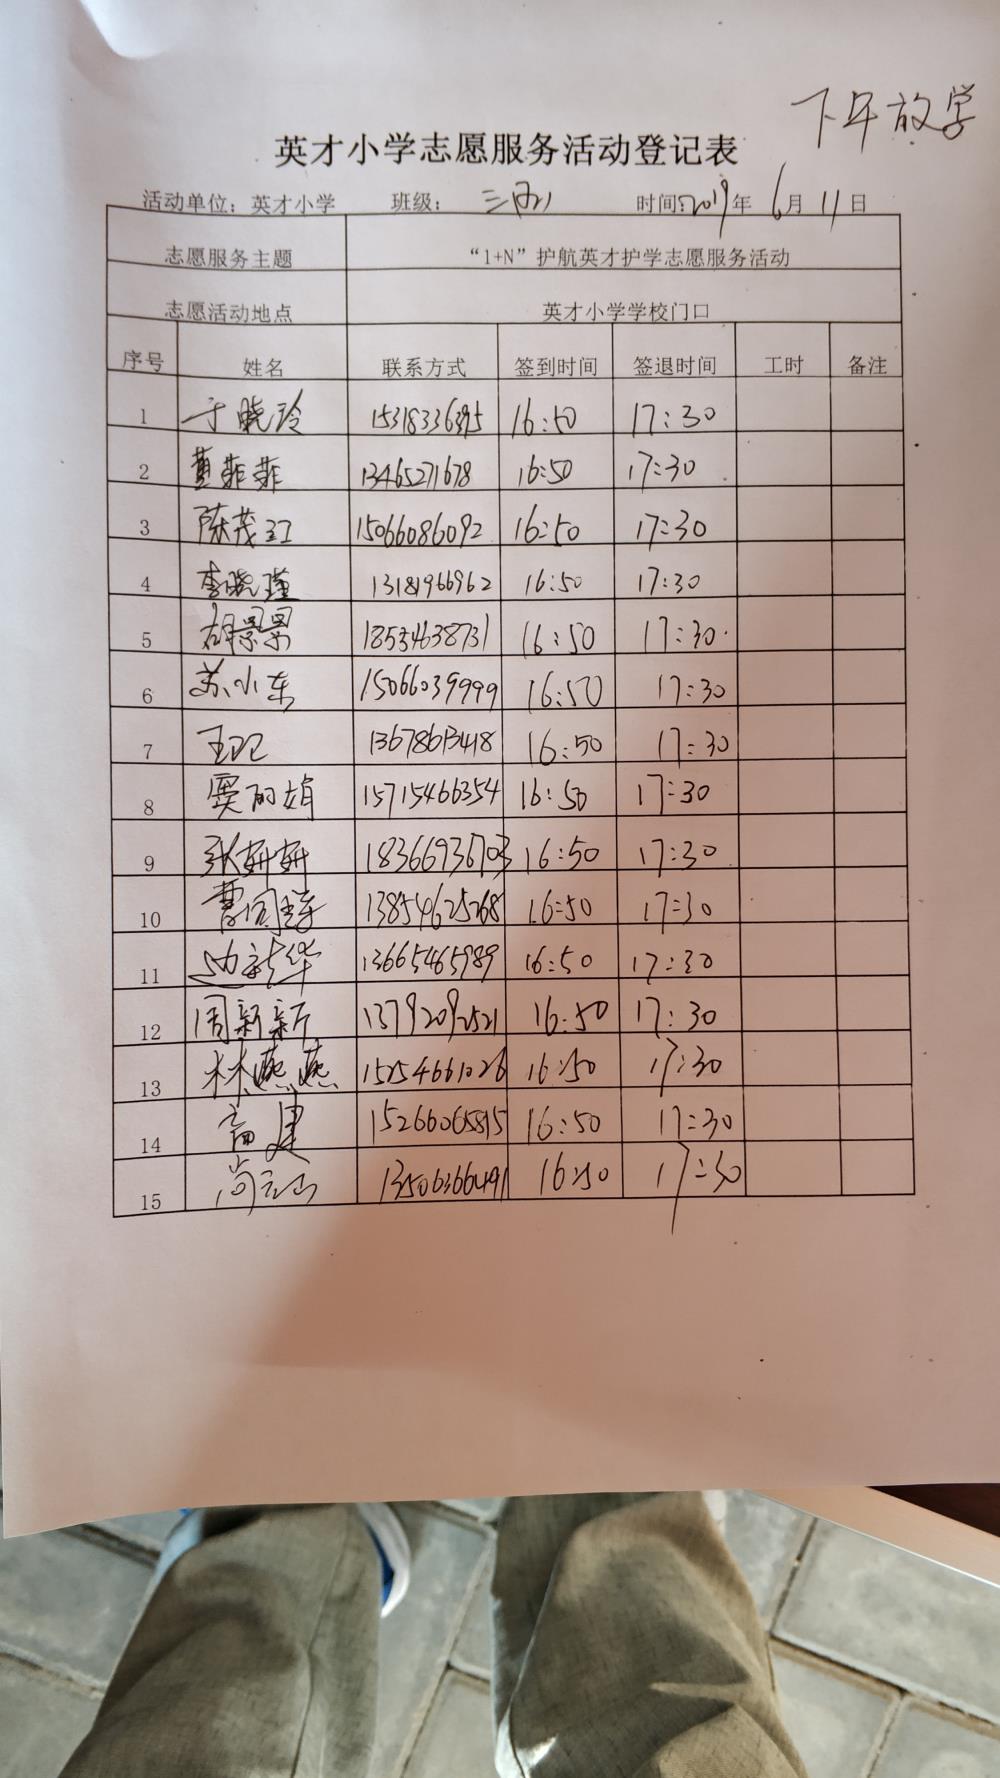 下午放学
英才小学志愿服务活动登记表
活动单位：英才小学 班级： 时间：2019年6月11日
志愿服务主题 “1+N”护航英才护学志愿服务活动
志愿活动地点 英才小学学校门口
序号 姓名 联系方式 签到时间 签退时间 工时 备注
1 于晓玲 15318336395 16:50 17:30
2 菲菲 13465271678 16:50 17:30
3 陈茂江 15066086092 16:50 17:30
4 李晓瑾 13181966962 16:50 17:30
5 胡景景 18534638731 16:50 17:30
6 苏小东 15066039999 16:50 17:30
7 13678613418 16:50 17:30
8 窦丽娟 15715466354 16:50 17:30
9 张妍妍 18366936703 16:50 17:30
10 曹 13854625268 16:50 17:30
11 边新华 13665465989 16:50 17:30
12 周新新 13792092521 16:50 17:30
13 林燕燕 15254661026 16:50 17:30
14 建 15266065815 16:50 17:30
15 尚 13506366491 16:50 17:30